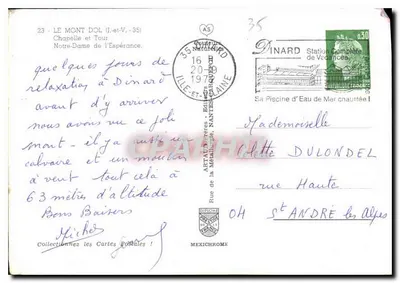 35
23 - LE MONT DOL (I-et-V.-35)
Chapelle et Tour
Notre-Dame de l'Espérance.
AS
35 DINARD
16 H
20-9
ILLE-ET-VILAINE
DINARD Station Complète
de Vacances
Sa Piscine d'Eau de Mer chauffée !
0,30
quelques jours de
relaxation à Dinard
avant d'y arriver
nous avons vu ce joli
mont - il y a
calvaire et un moulin
à vent tout cela à
63 mètres d'altitude
Bons Baisers
Michel
Collectionnez les Cartes Postales !
Rue de la Métallurgie, NANTES
MEXICHROME
Mademoiselle
DULONDEL
rue Haute
04 St ANDRÉ les Alpes